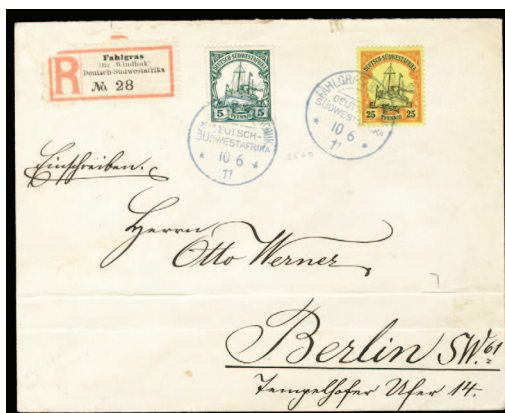 R
Fahlgras
(Bz. Windhuk)
Deutsch-Südwestafrika
No. 28
DEUTSCH-SÜDWESTAFRIKA
5 5
PFENNIG
DEUTSCH-SÜDWESTAFRIKA
25 25
PFENNIG
DEUTSCH-
SÜDWESTAFRIKA
* 10 6 *
11
FAHLGRAS
DEUTSCH-
SÜDWESTAFRIKA
* 10 6
11
Einschreiben.
Herrn
Otto Werner
Berlin SW. 61
Tempelhofer Ufer 14.